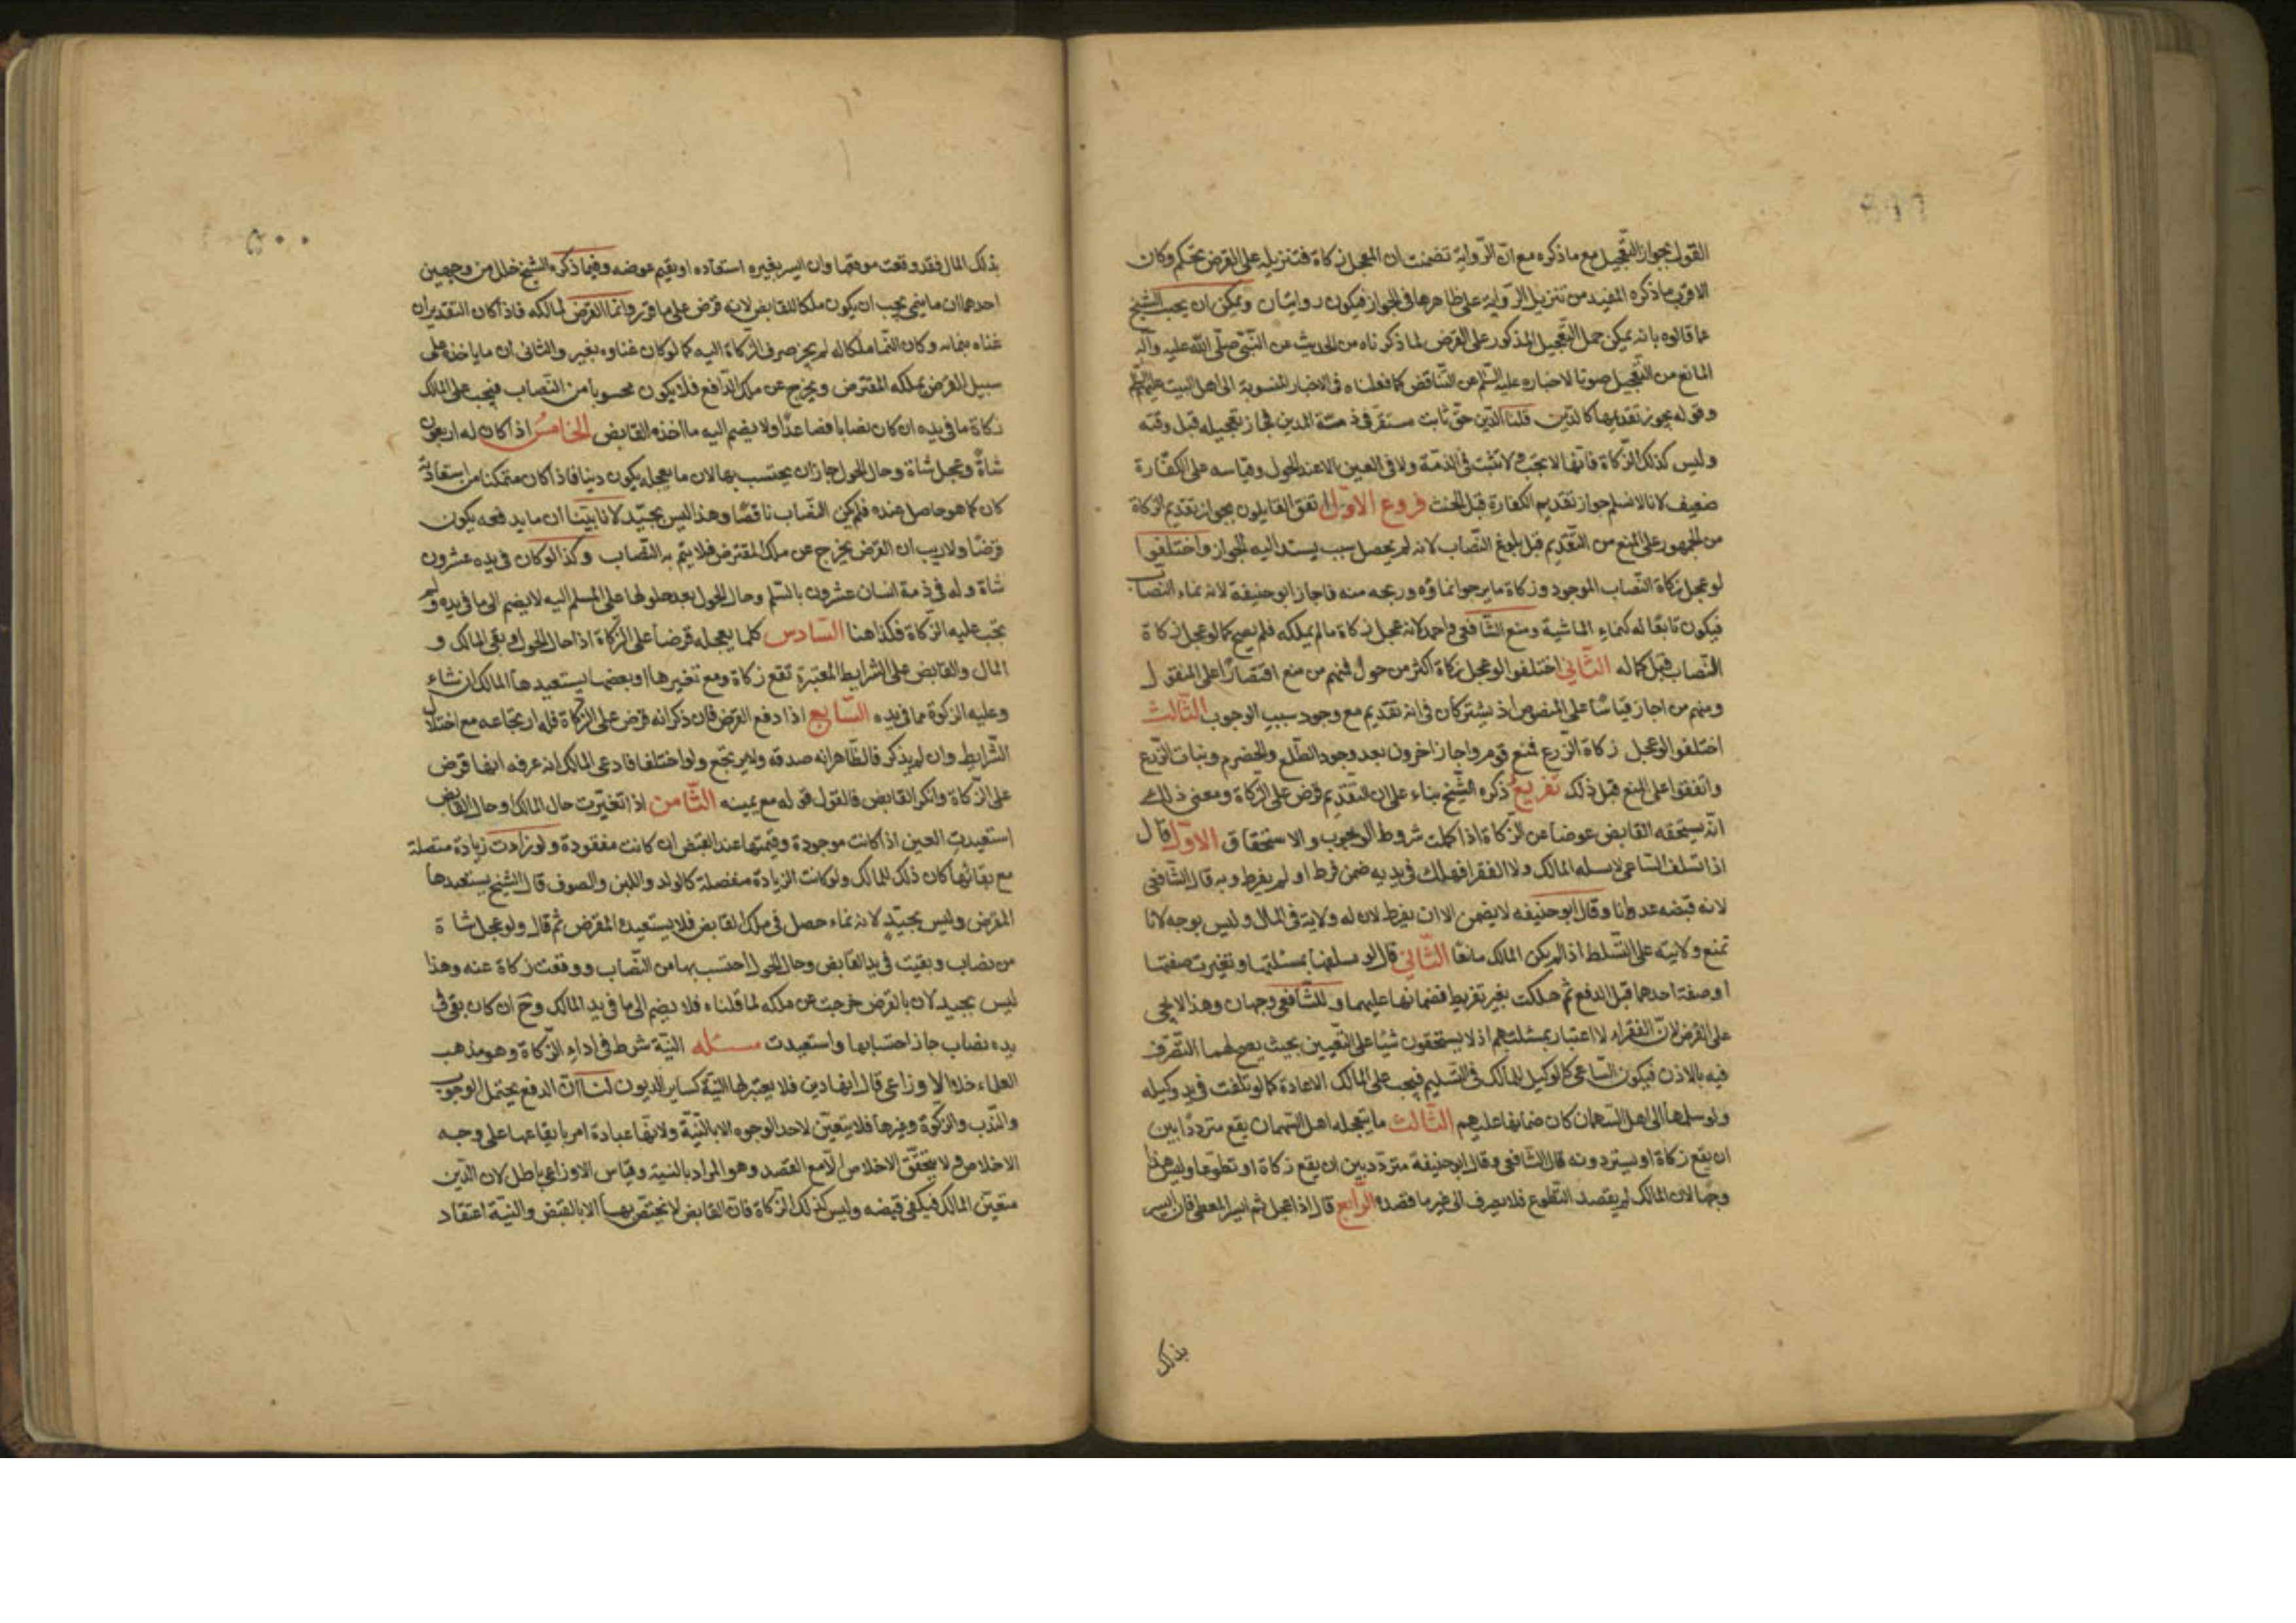 ٤٩٩
القول بجواز التعجيل مع ما ذكره مع انّ الرّواية تضمنت ان المعجل زكاة فتنزيله على القرض تحكم وكان
الاقرب ما ذكره المفيد من تنزيل الرّواية على ظاهرها في الجواز فيكون روايتان ويمكن ان يجيب الشيخ
عما قالوه بانه يمكن حمل التعجيل المذكور على القرض لما ذكرناه من الحديث عن النّبي صلّى اللّه عليه وآله
المانع من التعجيل صونا لاخباره عليه السّلم عن التّناقض كما فعلناه في الاخبار المنسوبة الى اهل البيت عليهم السلم
وقوله يجوز تقديمها كالدّين قلنا الدّين حقّ ثابت مستقرّ في ذمّة المدين فجاز تعجيله قبل وقته
وليس كذلك الزّكاة فانّها لا تجب ولا تثبت في الذمّة ولا في العين الا عند الحول وقياسه على الكفّارة
ضعيف لانا لا نسلم جواز تقديم الكفارة قبل الحنث فروع الاوّل اتفق القايلون بجواز تقديم الزكاة
من الجمهور على المنع من التّقديم قبل بلوغ النّصاب لانه لم يحصل سبب يستند اليه الجواز واختلفوا
لو عجل زكاة النّصاب الموجود وزكاة ما يرجوا نماؤه وربحه منه فاجاز ابو حنيفة لانه نماء النصاب
فيكون تابعًا له كنماء الماشية ومنع الشّافعي واحمد لانه عجل زكاة ما لم يملكه فلم يصح كما لو عجل زكاة
النّصاب قبل كماله الثّاني اختلفوا لو عجل زكاة اكثر من حول فمنهم من منع اقتصارًا على المنقول
ومنهم من اجاز قياسًا على المنصوص اذ يشتركان في انه تقديم مع وجود سبب الوجوب الثّالث
اختلفوا لو عجل زكاة الزّرع فمنع قوم واجاز اخرون بعد وجود الطّلع والحضرم ونبات الزّرع
واتفقوا على المنع قبل ذلك تفريع ذكره الشّيخ بناء على ان التّقديم قرض على الزّكاة ومعنى ذلك
انّه يستحقه القابض عوضا عن الزّكاة اذا كملت شروط الوجوب والاستحقاق الاوّل قال
اذا تسلف السّاعي لا بمسئلة المالك ولا الفقرا فهلك في يديه ضمن فرط او لم يفرط وبه قال الشّافعي
لانه قبضه عدوانا وقال ابو حنيفه لا يضمن الا ان يفرط لان له ولاية في المال وليس بوجه لانا
نمنع ولايته على التّسلط اذا لم يكن المالك مانعًا الثّاني قال لو تسلفها بمسئلتهما وتغيرت صفتهما
او صفة احدهما قبل الدفع ثم هلكت بغير تفريط فضمانها عليهما وللشّافعي وجهان وهذا لا يجي
على القرض لانّ الفقراء لا اعتبار بمسئلتهم اذ لا يستحقون شيئا على التّعيين بحيث يصح لهما التّصرف
فيه بالاذن فيكون السّاعي كالوكيل للمالك في التّسليم فيجب على المالك الاعادة كما لو تلفت في يد وكيله
ولو سلمها الى اهل السّهمان كان ضمانها عليهم الثّالث ما يتعجله اهل السّهمان يقع مترددًا بين
ان يقع زكاة او يستردونه قال الشّافعي وقال ابو حنيفة متردّد بين ان يقع زكاة او تطوعا وليس هذا
وجها لان المالك لم يقصد التّطوع فلا يصرف الى غير ما قصده الرّابع قال اذا عجل ثم ايسر المعطى فان ايسر
بذلك
٥٠٠
بذلك المال فقد وقعت موقعها وان ايسر بغيره استعاده او يقيم عوضه وفيما ذكره الشيخ خلل من وجهين
احدهما ان ما ينمي يجب ان يكون ملكا للقابض لانه قرض على ما قرر وانما القرض لمالكه فاذا كان التقدير ان
غناه بنمائه وكان النّما ملكا له لم يجز صرف الزّكاة اليه كما لو كان غناوه بغير والثاني ان ما ياخذه على
سبيل القرض يملكه المقترض ويخرج عن ملك الدّافع فلا يكون محسوبا من النّصاب فيجب على المالك
زكاة ما في يده ان كان نصابا فصاعدًا ولا يضم اليه ما اخذه القابض الخامسُ اذا كان له اربعون
شاةً وعجل شاة وحال الحول جاز ان يحتسب بها لان ما يعجله يكون دينا فاذا كان متمكنا من استعادته
كان كما هو حاصل عنده فلم يكن النّصاب ناقصًا وهذا ليس بجيّد لانا بيّنا ان ما يدفعه يكون
قرضًا ولا ريب ان القرض يخرج عن ملك المقترض فلا يتم به النّصاب وكذا لو كان في يده عشرون
شاة وله في ذمة انسان عشرون بالسّلم وحال الحول بعد حلولها على المسلم اليه لا يضم الى ما في يده ولم
تجب عليه الزّكاة فكذا هنا السّادس كلما يعجله قرضا على الزّكاة اذا حال الحول وبقي المالك و
المال والقابض على الشرايط المعتبرة تقع زكاة ومع تغيرها او بعضها يستعيدها المالك ان شاء
وعليه الزكوة مما في يده السّابع اذا دفع القرض فان ذكر انه قرض على الزّكاة فله ارتجاعه مع اختلال
الشّرايط وان لم يذكر فالظّاهر انه صدقه ولا يرتجع ولو اختلفا فادعى المالك انه عرفه انها قرض
على الزّكاة وانكر القابض فالقول قوله مع يمينه الثّامن اذا تغيّرت حال المالك او حال القابض
استعيدت العين اذا كانت موجودة وقيمتها عند القبض ان كانت مفقودة ولو زادت زيادة متصلة
مع بقائها كان ذلك للمالك ولو كانت الزيادة منفصلة كالولد واللبن والصوف قال الشيخ يستعيدها
المقرض وليس بجيّدٍ لانه نماء حصل في ملك القابض فلا يستعيده المقرض ثم قال ولو عجل شاة
من نصاب وبقيت في يد القابض وحال الحول احتسب بها من النّصاب ووقعت زكاة عنه وهذا
ليس بجيد لان بالقرض خرجت عن ملكه لما قلناه فلا يضم الى ما في يد المالك وحٓ ان كان بقي في
يده نصاب جاز احتسابها واستعيدت مسئله النيّة شرط في اداء الزّكاة وهو مذهب
العلماء خلا الاوزاعي قال انها دين فلا يعتبر لها النيّة كساير الديون لنا انّ الدفع يحتمل الوجوب
والنّدب والزكوة وغيرها فلا يتعيّن لاحد الوجوه الا بالنّيّة ولانها عبادة امر بايقاعها على وجه
الاخلاص ولا يتحقّق الاخلاص الّا مع القصد وهو المراد بالنية وقياس الاوزاعي باطل لان الدّين
متعيّن المالك فيكفي قبضه وليس كذلك الزّكاة فانّ القابض لا يختصّ بها الا بالقبض والنيّة اعتقاد